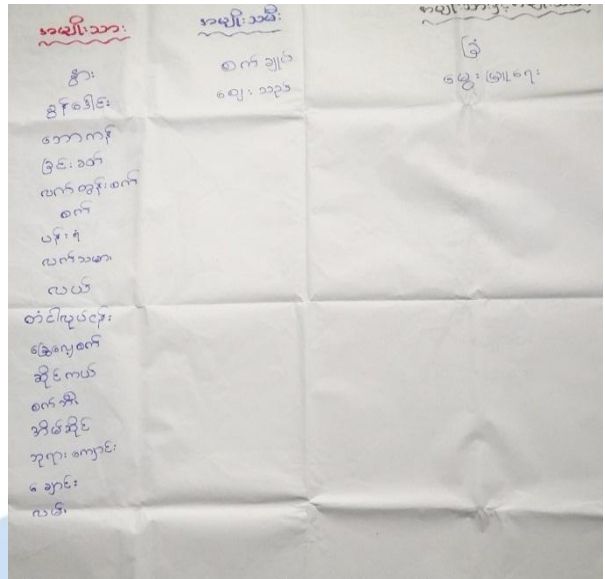 အမျိုးသား
နွား
ထွန်ခေါင်း
ဘောကန်
ခြင်းခတ်
လက်တွန်းစက်
စက်
ပန်းရံ
လက်သမား
လယ်
တံငါလုပ်ငန်း
ခြွေလှေ့စက်
ဆိုင်ကယ်
စက်ဘီး
အိမ်ဆိုင်
ဘုရားကျောင်း
ချောင်း
လမ်း
အမျိုးသမီး
စက်ချုပ်
ဈေးသည်
ခြံ
မွေးမြူရေး